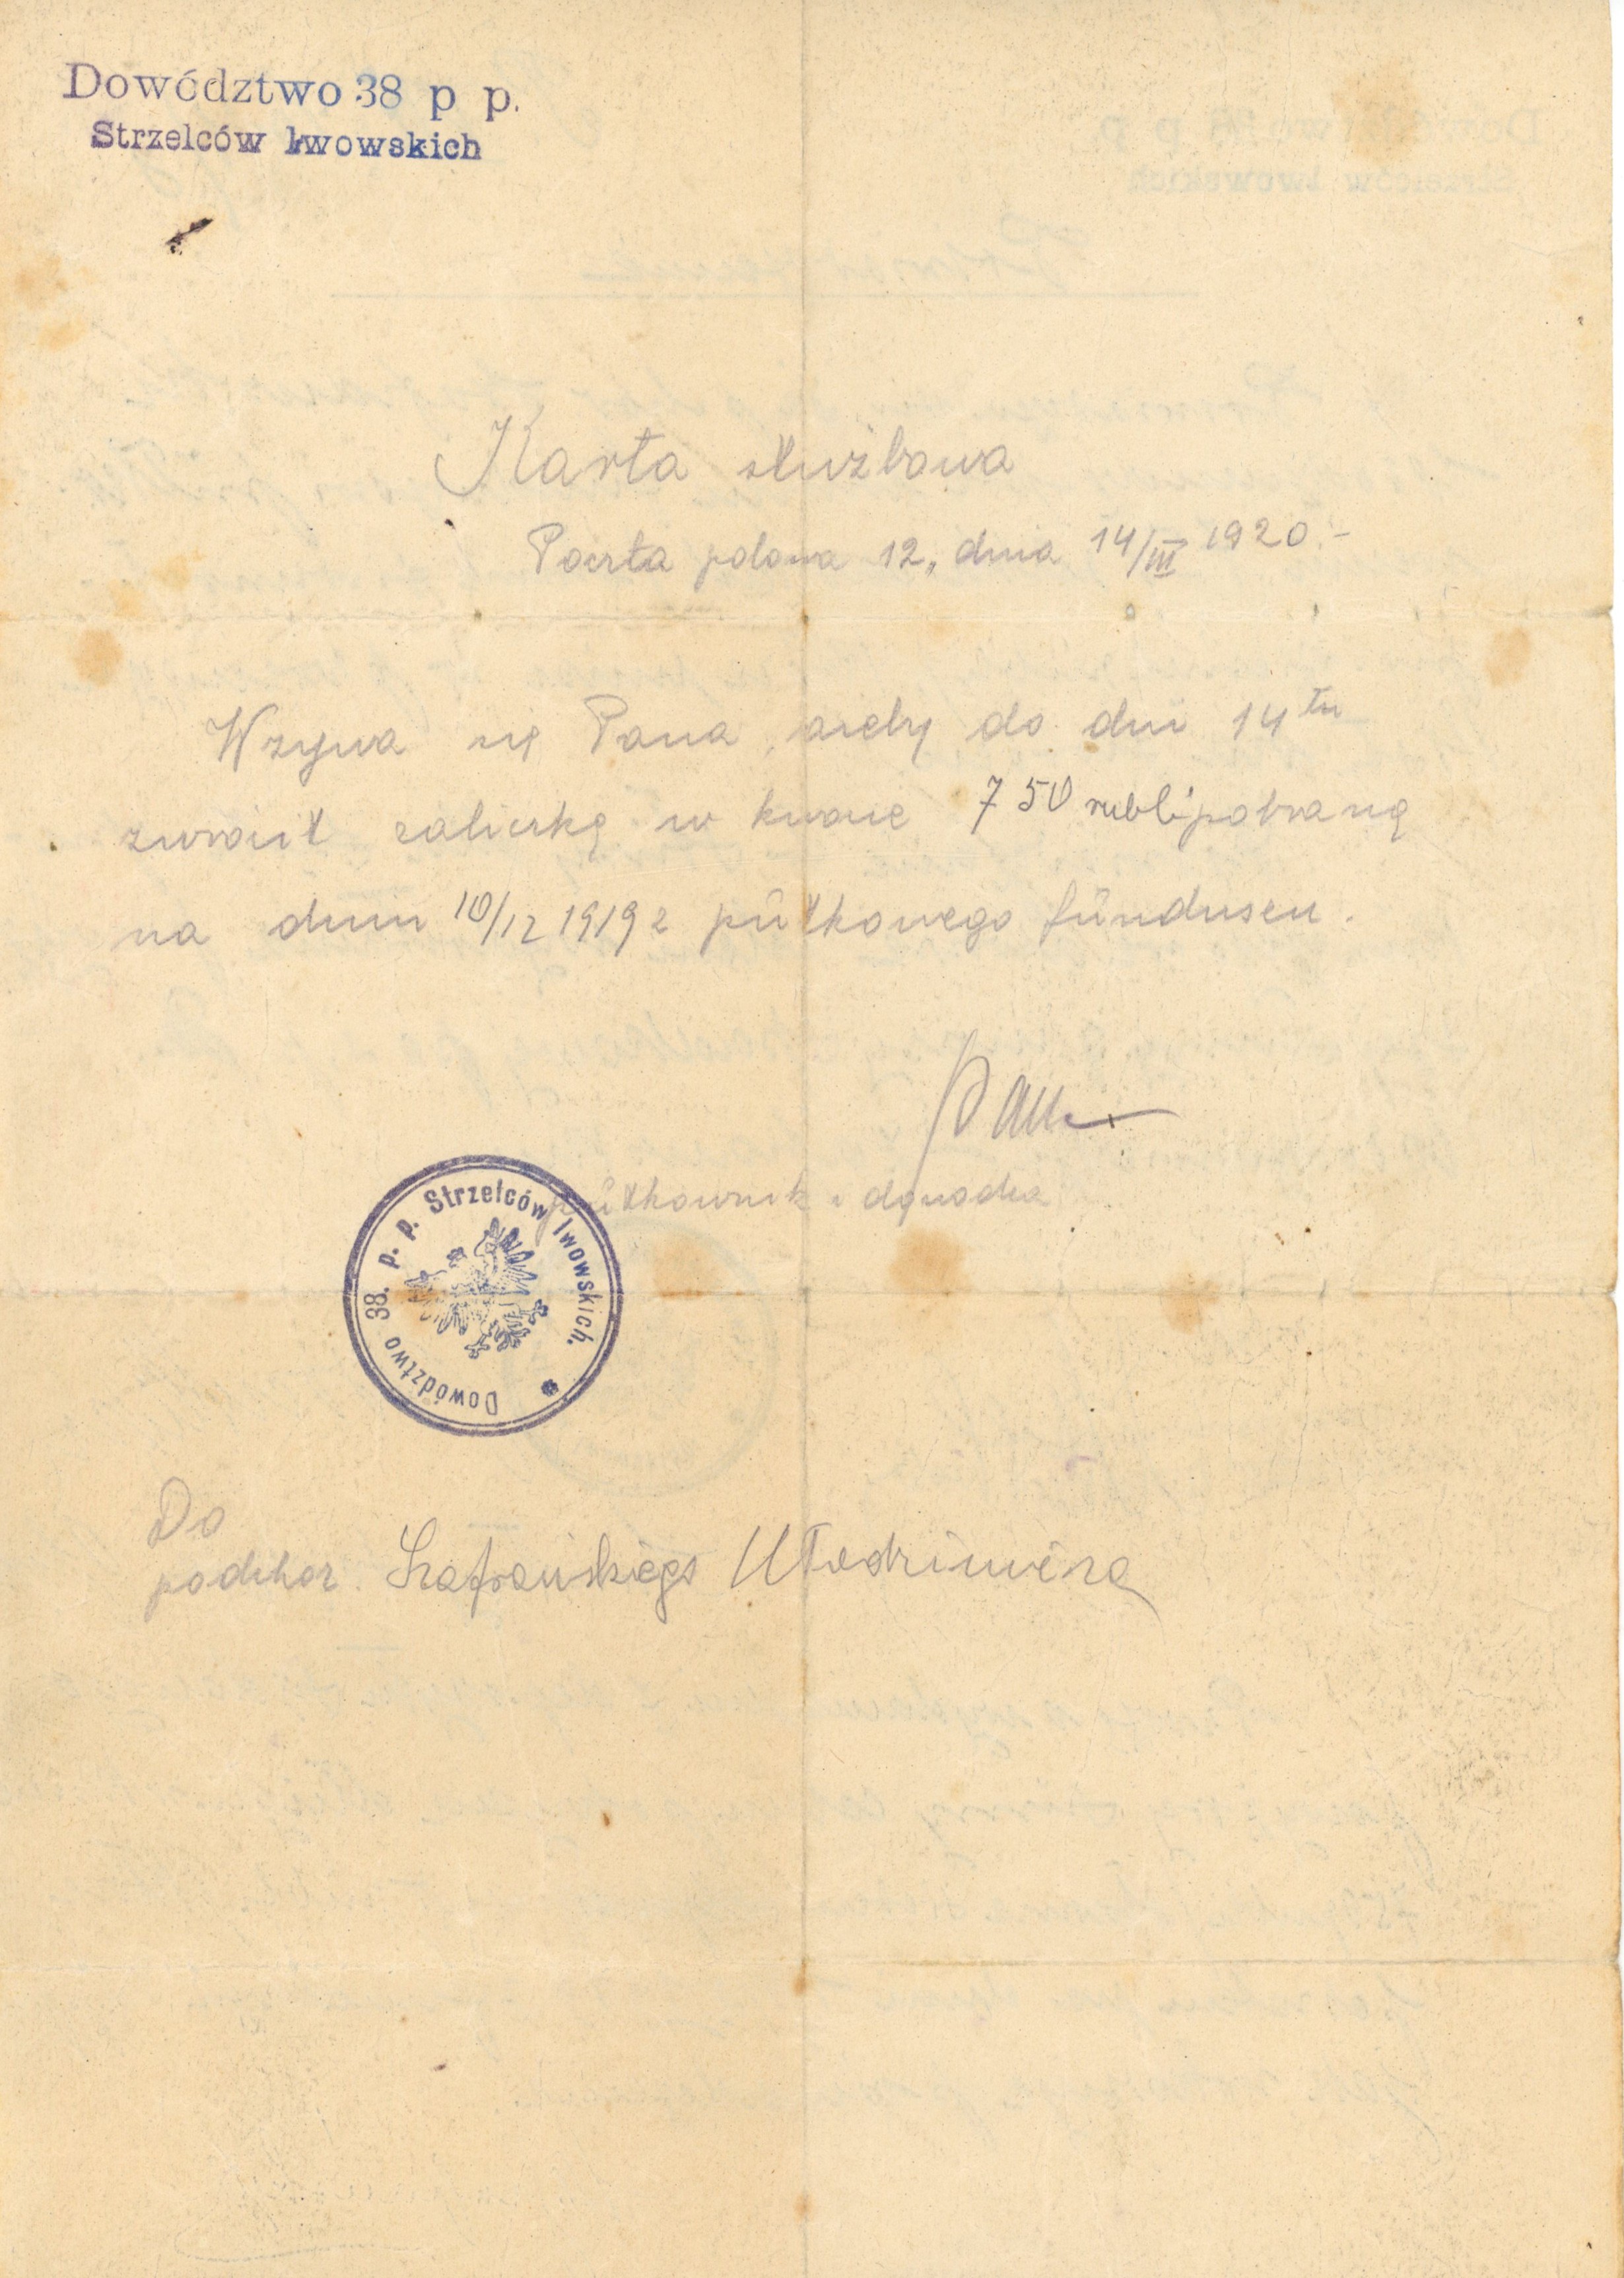 Dowództwo 38 p p.
Strzelców lwowskich
Karta służbowa
Poczta polowa 12, dnia 14/III 1920.-
Wzywa się Pana, ażeby do dni 14tu
zwrócił zaliczkę w kwocie 750 rubli pobraną
na dniu 10/12 1919 z pułkowego funduszu.
pułkownik i dowódca
Dowództwo 38. p. p. Strzelców lwowskich.
Do
podchor. Szafrańskiego Włodzimierza